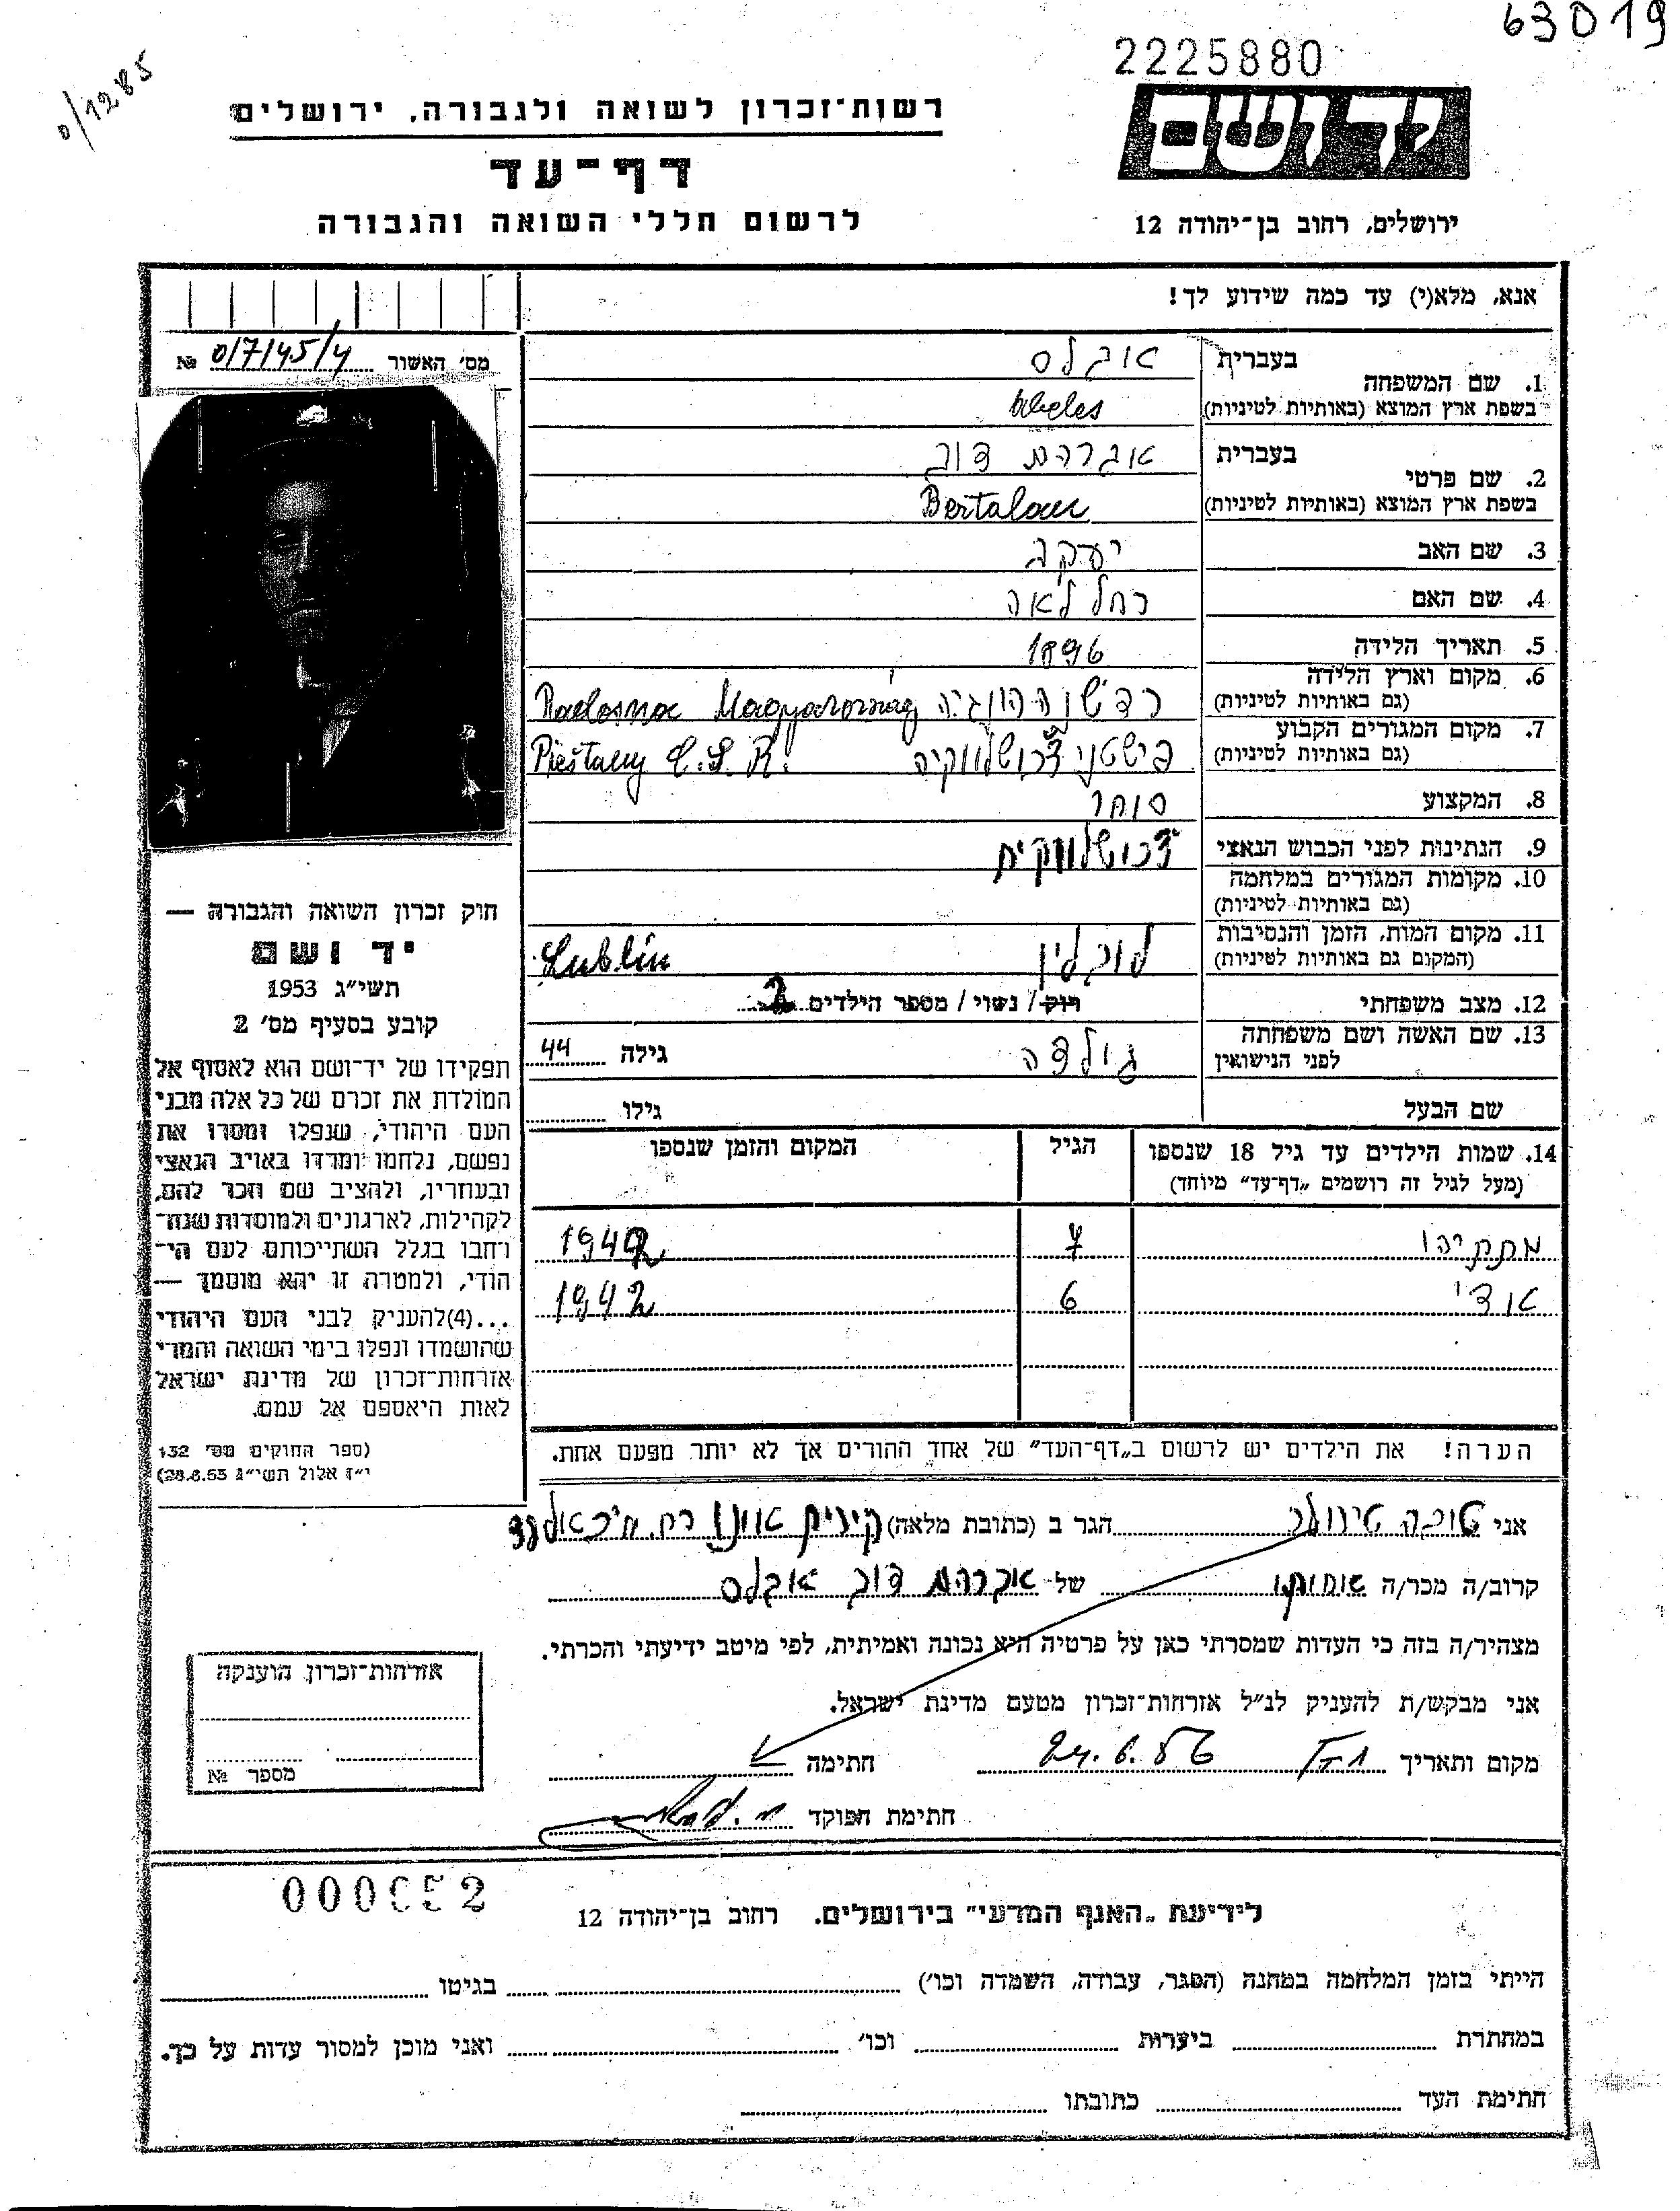 63019
2225880
0/1285
יד ושם
רשות־זכרון לשואה ולגבורה, ירושלים
דף־עד
לרשום חללי השואה והגבורה
ירושלים, רחוב בן־יהודה 12
אנא, מלא(י) עד כמה שידוע לך!
מס' האשור 0/7/45/4 №
1. שם המשפחה
בעברית אבלס
בשפת ארץ המוצא (באותיות לטיניות) Abeles
2. שם פרטי
בעברית אברהם דוב
בשפת ארץ המוצא (באותיות לטיניות) Bertalan
3. שם האב יעקב
4. שם האם רחל לאה
5. תאריך הלידה 1896
6. מקום וארץ הלידה
(גם באותיות לטיניות) רדשנה הונגיה Radosna Magyarország
7. מקום המגורים הקבוע
(גם באותיות לטיניות) פישטני צ'כוסלווקיה Pieštany Č.S.R.
8. המקצוע סוחר
9. הנתינות לפני הכבוש הנאצי צ'כושלווקית
10. מקומות המגורים במלחמה
(גם באותיות לטיניות)
11. מקום המות, הזמן והנסיבות
(המקום גם באותיות לטיניות) לובלין Lublin
12. מצב משפחתי רוק / נשוי / מספר הילדים 2
13. שם האשה ושם משפחתה
לפני הנישואין גולדה גילה 44
שם הבעל גילו
14. שמות הילדים עד גיל 18 שנספו הגיל המקום והזמן שנספו
(מעל לגיל זה רושמים „דף־עד” מיוחד)
מתתיהו 7 1942
אודי 6 1942
הערה! את הילדים יש לרשום ב„דף־העד” של אחד ההורים אך לא יותר מפעם אחת.
חוק זכרון השואה והגבורה —
יד ושם
תשי״ג 1953
קובע בסעיף מס' 2
תפקידו של יד־ושם הוא לאסוף אל
המולדת את זכרם של כל אלה מבני
העם היהודי, שנפלו ומסרו את
נפשם, נלחמו ומרדו באויב הנאצי
ובעוזריו, ולהציב שם וזכר להם,
לקהילות, לארגונים ולמוסדות שנח־
רחבו בגלל השתייכותם לעם הי־
הודי, ולמטרה זו יהא מוסמך —
...(4)להעניק לבני העם היהודי
שהושמדו ונפלו בימי השואה והמרי
אזרחות־זכרון של מדינת ישראל
לאות היאספם אל עמם.
(ספר החוקים מס' 132
י״ז אלול תשי״ג 28.8.53)
אני טובה הגר ב (כתובת מלאה) קירית אונו רח.
קרוב/ה מכר/ה של אברהם דוב אבלס
מצהיר/ה בזה כי העדות שמסרתי כאן על פרטיה היא נכונה ואמיתית, לפי מיטב ידיעתי והכרתי.
אני מבקש/ת להעניק לנ״ל אזרחות־זכרון מטעם מדינת ישראל.
מקום ותאריך 24.6.56 חתימה
חתימת הפוקד
אזרחות־זכרון הוענקה
מספר №
000652
לידיעת „האגף המדעי” בירושלים. רחוב בן־יהודה 12
הייתי בזמן המלחמה במחנה (הסגר, עבודה, השמדה וכו') בגיטו
במחתרת ביערות וכו' ואני מוכן למסור עדות על כך.
חתימת העד כתובתו